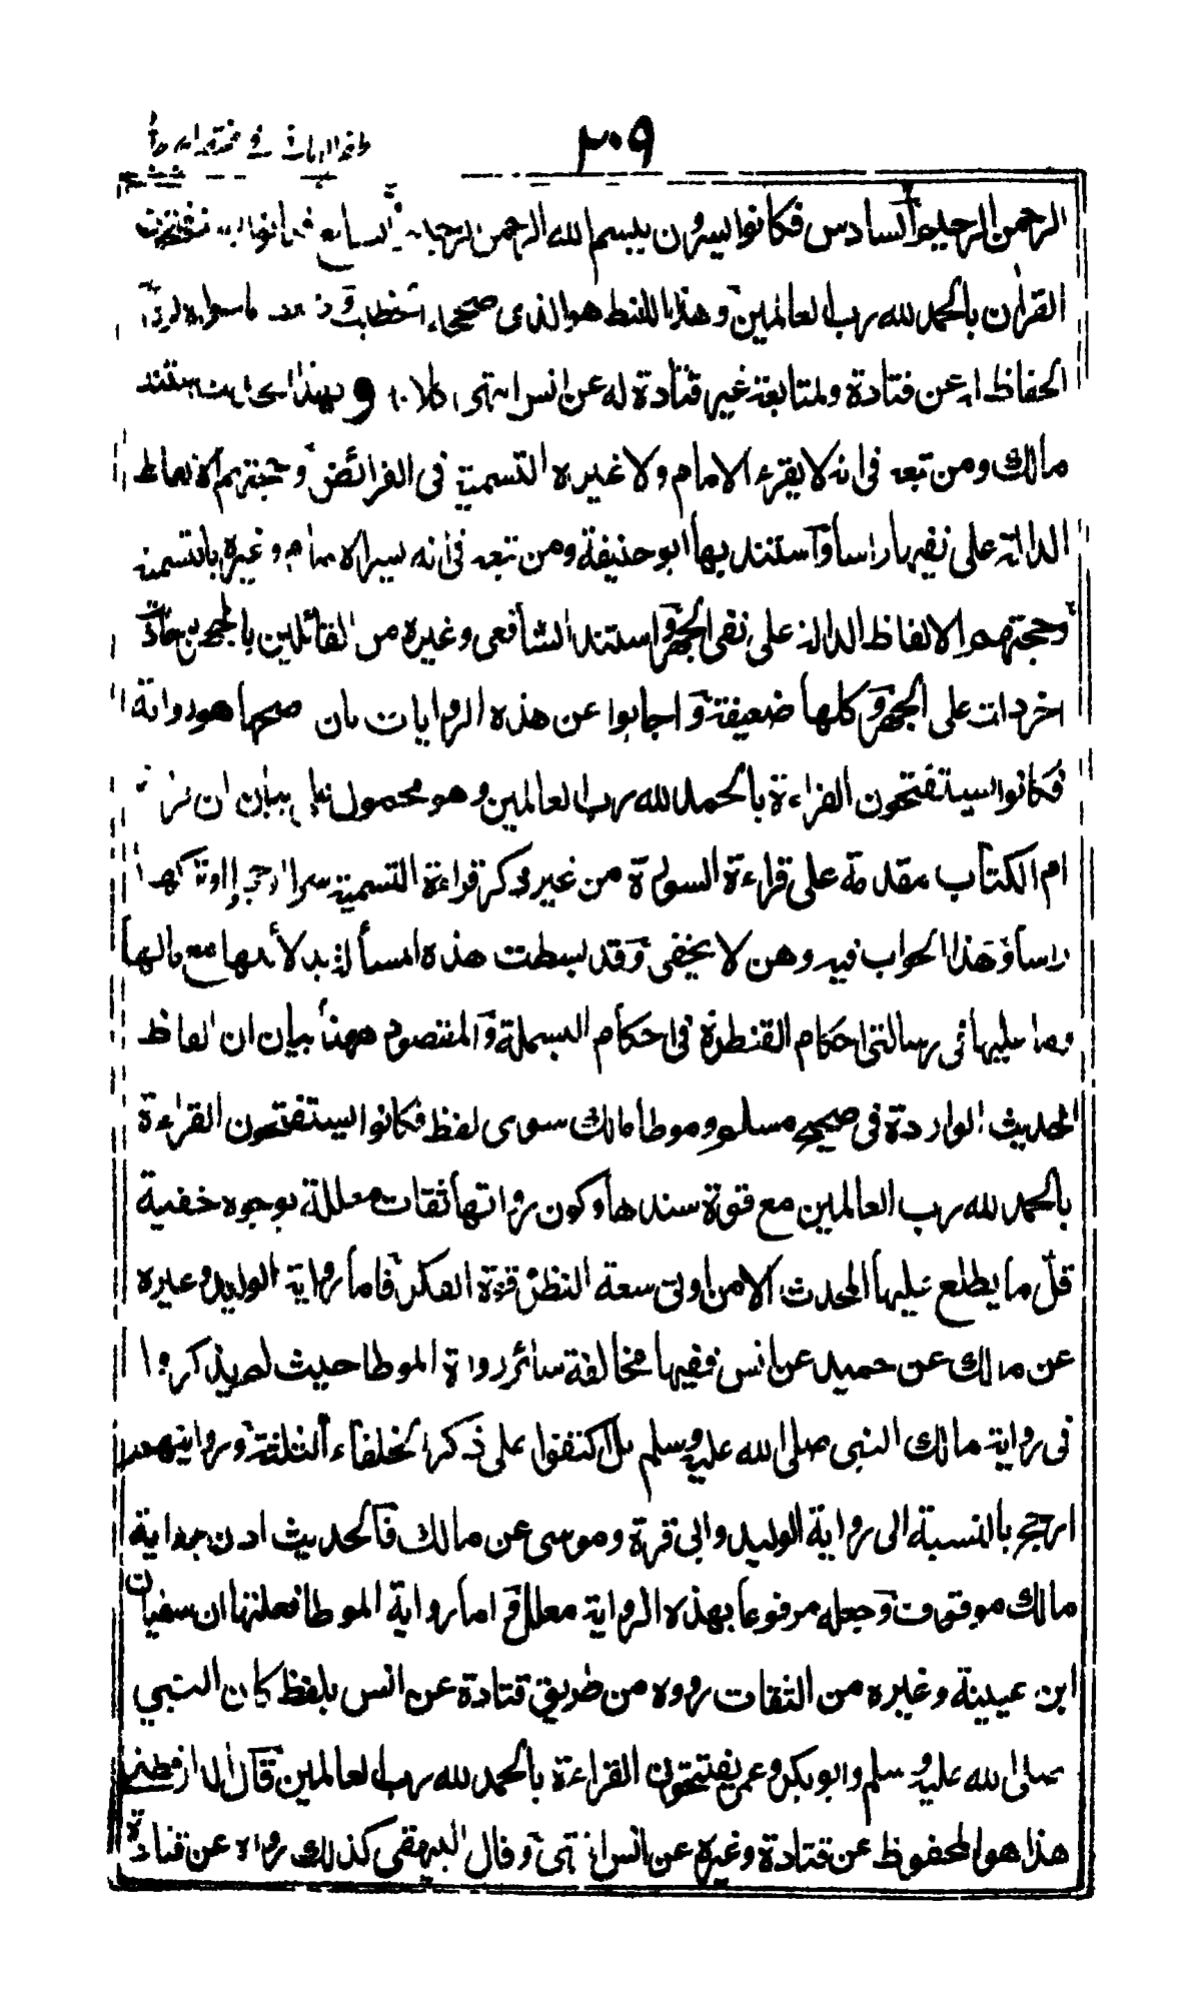 ٢٠٩
الرحمن الرحيم والسادس فكانوا يسرون ببسم الله الرحمن الرحيم والسابع فكانوا يستفتحون
القرآن بالحمد لله رب العالمين وهذا اللفظ هو الذي صححه الخطيب
الحفاظ عن قتادة ولمتابعة غير قتادة له عن انس انتهى كلامه وبهذا الحديث يستند
مالك ومن تبعه في انه لا يقرء الامام ولا غيره التسمية في الفرائض وحجتهم الالفاظ
الدالة على نفيها راسا واستند بها ابو حنيفة ومن تبعه في انه يسر الامام وغيره بالتسمية
وحجتهم الالفاظ الدالة على نفي الجهر واستند الشافعي وغيره من القائلين بالجهر
اخر دالت على الجهر وكلها ضعيفة واجابوا عن هذه الروايات بان اصحها هو رواية
فكانوا يستفتحون القراءة بالحمد لله رب العالمين وهو محمول على بيان ان
ام الكتاب مقدمة على قراءة السورة من غير ذكر قراءة التسمية سرا او جهرا او تركها
راسا وهذا الجواب فيه وهن لا يخفى وقد بسطت هذه المسألة بدلائلها مع مالها
وما عليها في رسالتي احكام القنطرة في احكام البسملة والمقصود ههنا بيان ان الفاظ
الحديث الواردة في صحيح مسلم وموطا مالك سوى لفظ فكانوا يستفتحون القراءة
بالحمد لله رب العالمين مع قوة سندها وكون رواتها ثقات معللة بوجوه خفية
قل ما يطلع عليها المحدث الا من اوتي سعة النظر وقوة الفكر فاما رواية الوليد وغيره
عن مالك عن حميد عن انس ففيها مخالفة سائر رواة الموطا حيث لم يذكروا
في رواية مالك النبي صلى الله عليه وسلم بل اكتفوا على ذكر الخلفاء الثلثة وروايتهم
ارجح بالنسبة الى رواية الوليد وابي قرة وموسى عن مالك فالحديث اذن برواية
مالك موقوف وجعله مرفوعا بهذه الرواية معلل واما رواية الموطا فعلتها ان سفيان
ابن عيينة وغيره من الثقات رووه من طريق قتادة عن انس بلفظ كان النبي
صلى الله عليه وسلم وابو بكر وعمر يفتتحون القراءة بالحمد لله رب العالمين قال الدارقطني
هذا هو المحفوظ عن قتادة وغيره عن انس انتهى وقال البيهقي كذلك رواه عن قتادة